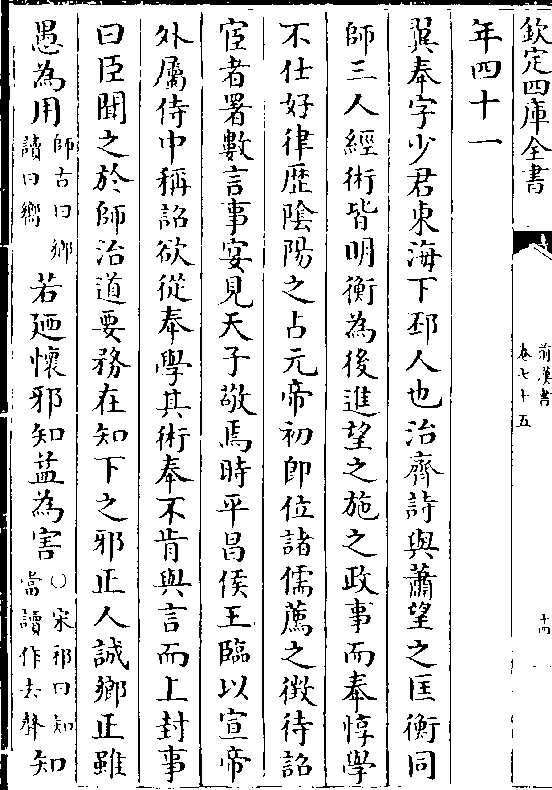 欽定四庫全書
前漢書
卷七十五
十四
年四十一
翼奉字少君東海下邳人也治齊詩與蕭望之匡衡同
師三人經術皆明衡為後進望之施之政事而奉惇學
不仕好律歴隂陽之占元帝初即位諸儒薦之徵待詔
宦者署數言事宴見天子敬焉時平昌侯王臨以宣帝
外屬侍中稱詔欲從奉學其術奉不肯與言而上封事
曰臣聞之於師治道要務在知下之邪正人誠鄉正雖
愚為用師古曰鄉讀曰嚮若廼懷邪知益為害○宋祁曰知當讀作去聲知